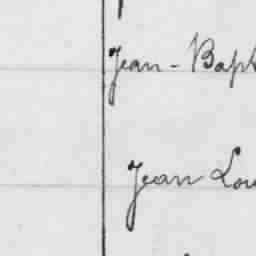 Jean-Bapt
Jean Lou